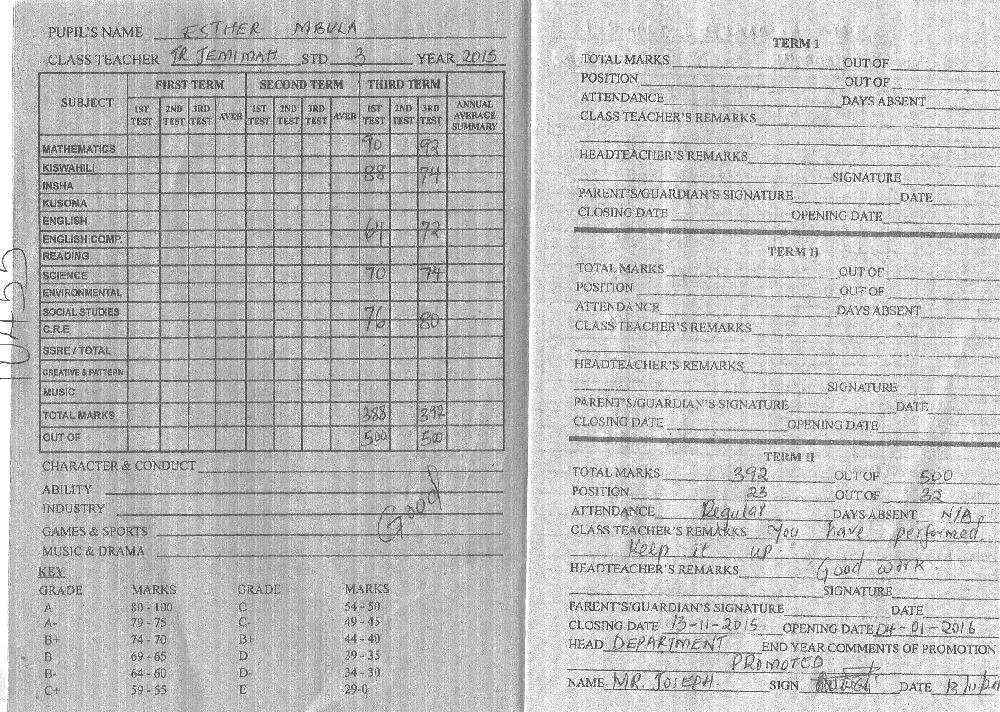 PUPIL'S NAME ESTHER MBULA
CLASS TEACHER TR JEMIMAH STD 3 YEAR 2015
SUBJECT FIRST TERM SECOND TERM THIRD TERM ANNUAL AVERAGE SUMMARY
1ST TEST 2ND TEST 3RD TEST AVER 1ST TEST 2ND TEST 3RD TEST AVER 1ST TEST 2ND TEST 3RD TEST
MATHEMATICS 90 92
KISWAHILI 88 74
INSHA
KUSOMA
ENGLISH 64 72
ENGLISH COMP.
READING
SCIENCE 70 74
ENVIRONMENTAL
SOCIAL STUDIES 76 80
C.R.E
SSRE / TOTAL
CREATIVE & PATTERN
MUSIC
TOTAL MARKS 388 392
OUT OF 500 500
CHARACTER & CONDUCT
ABILITY
INDUSTRY Good
GAMES & SPORTS
MUSIC & DRAMA
KEY
GRADE MARKS GRADE MARKS
A 80 - 100 C 54 - 50
A- 79 - 75 C- 49 - 45
B+ 74 - 70 44 - 40
B 69 - 65 D 39 - 35
B- 64 - 60 D- 34 - 30
C+ 59 - 55 E 29-0
TERM I
TOTAL MARKS OUT OF
POSITION OUT OF
ATTENDANCE DAYS ABSENT
CLASS TEACHER'S REMARKS
HEADTEACHER'S REMARKS
SIGNATURE
PARENT'S/GUARDIAN'S SIGNATURE DATE
CLOSING DATE OPENING DATE
TERM II
TOTAL MARKS OUT OF
POSITION OUT OF
ATTENDANCE DAYS ABSENT
CLASS TEACHER'S REMARKS
HEADTEACHER'S REMARKS
SIGNATURE
PARENT'S/GUARDIAN'S SIGNATURE DATE
CLOSING DATE OPENING DATE
TERM II
TOTAL MARKS 392 OUT OF 500
POSITION 23 OUT OF 32
ATTENDANCE Regular DAYS ABSENT N/A
CLASS TEACHER'S REMARKS You have performed
Keep it up
HEADTEACHER'S REMARKS Good work.
SIGNATURE
PARENT'S/GUARDIAN'S SIGNATURE DATE
CLOSING DATE 13-11-2015 OPENING DATE 04-01-2016
HEAD DEPARTMENT END YEAR COMMENTS OF PROMOTION
PROMOTED
NAME MR. JOSEPH SIGN DATE